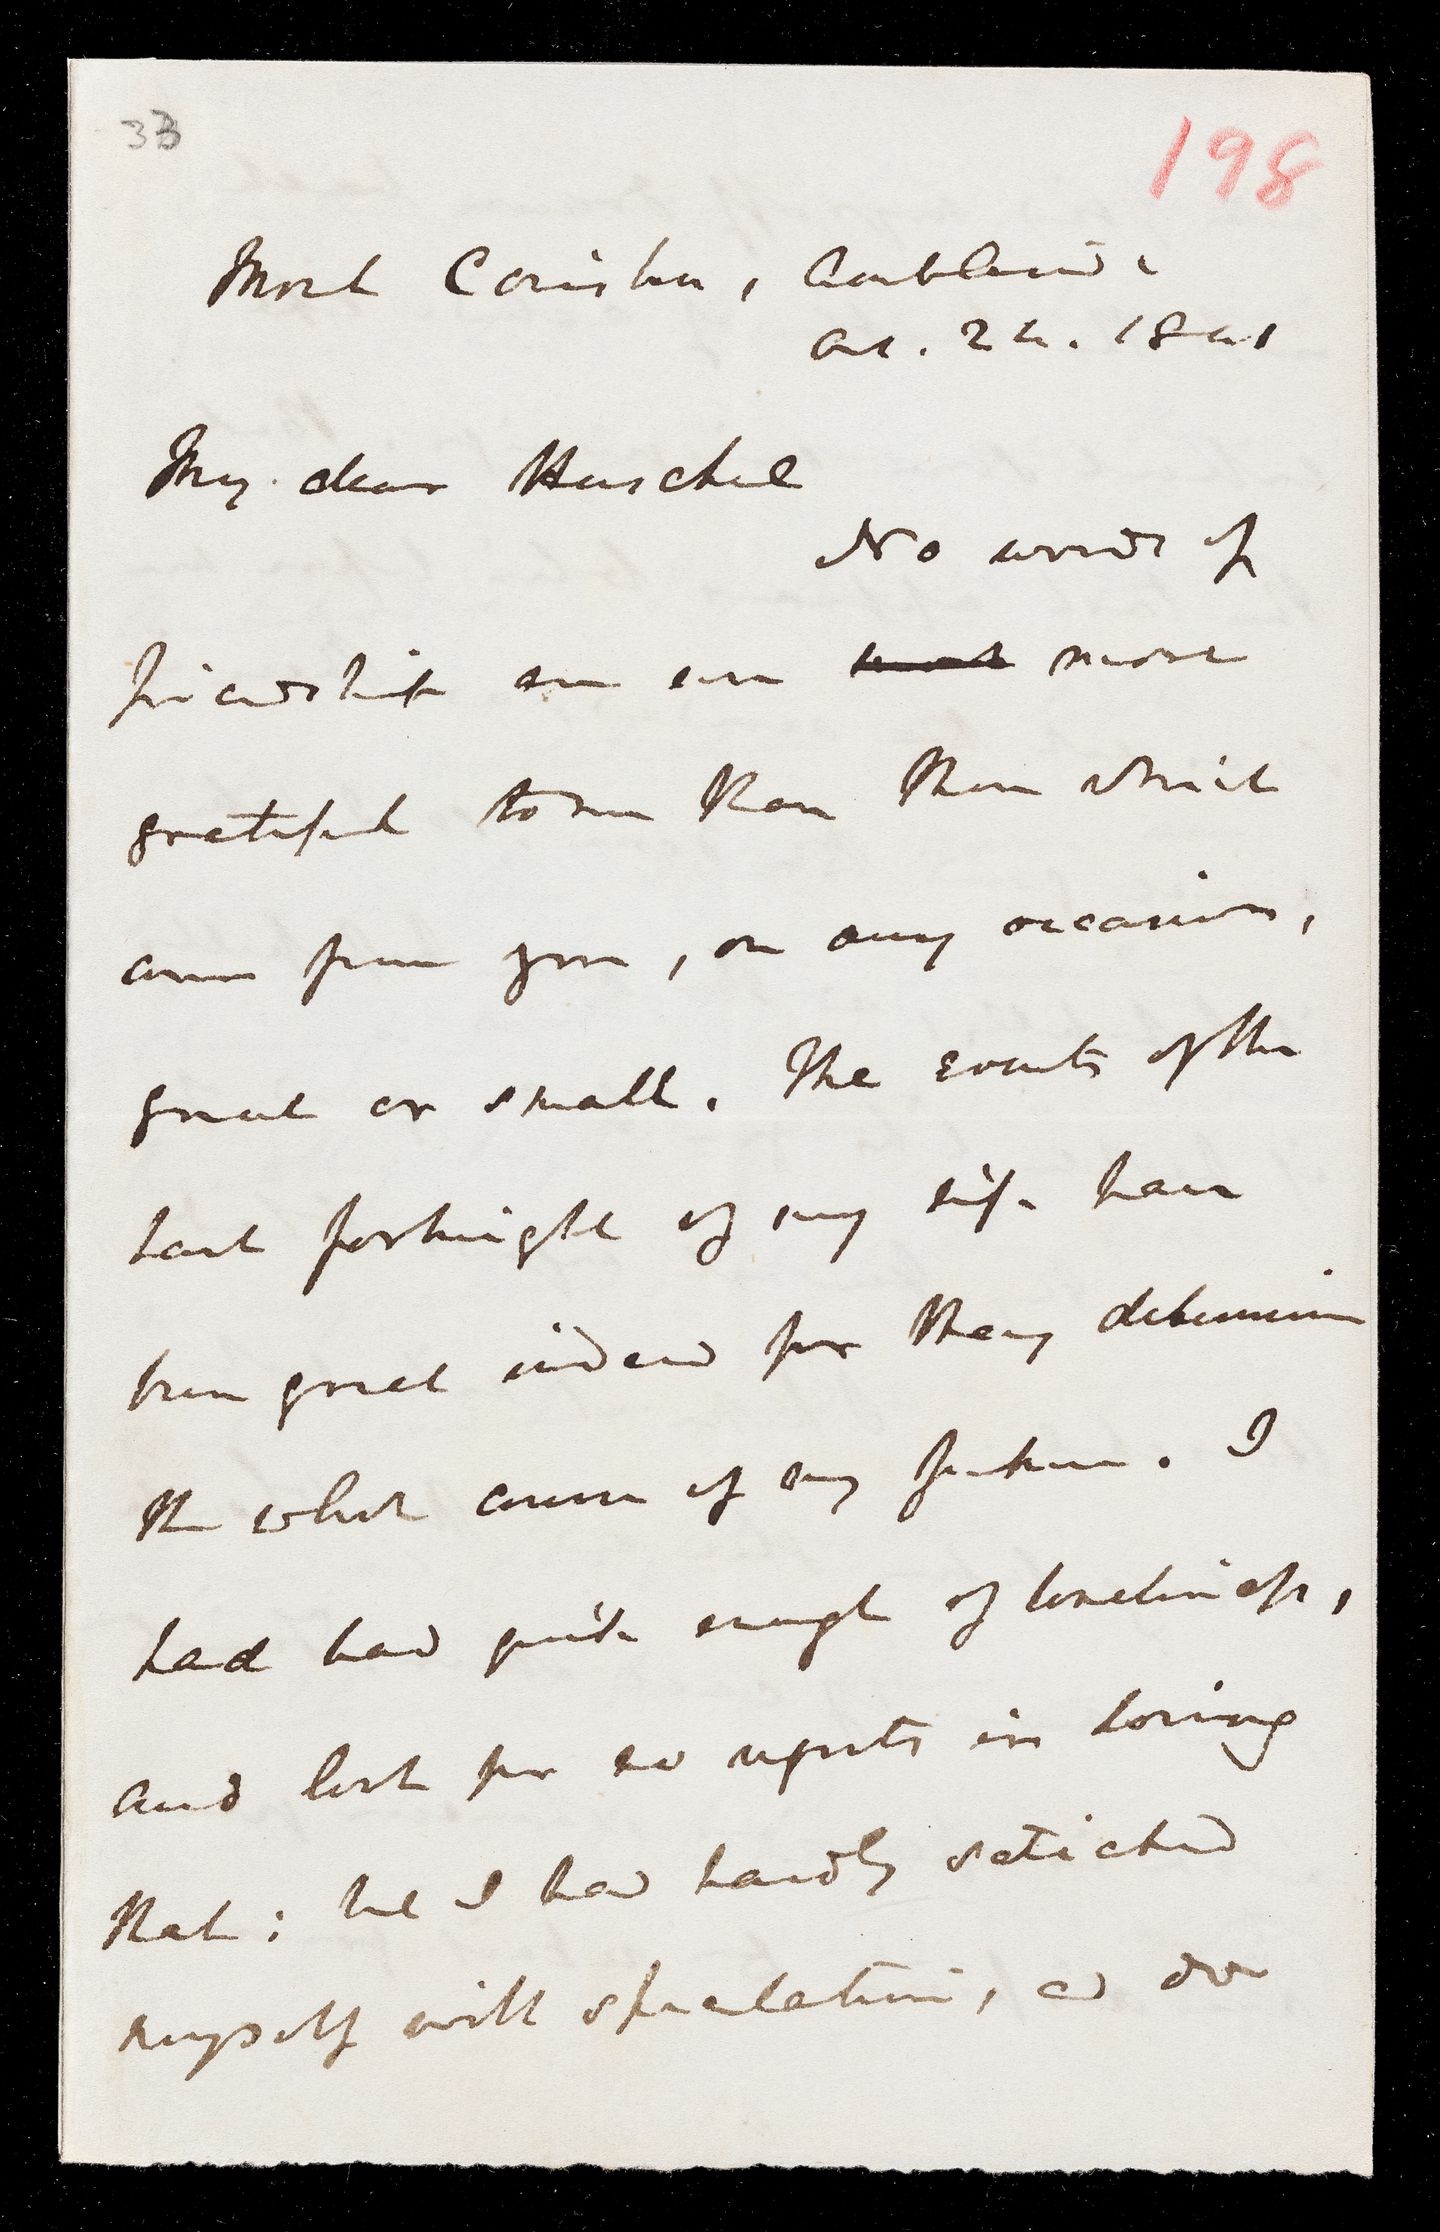 33
198
Most Coniston, Ambleside
Oct. 24. 1841
My dear Herschel
No words of
friendship are ever most more
grateful to me than those which
come from you, on any occasion,
great or small. The events of the
last fortnight of my life have
been great indeed for they determine
the whole course of my future. I
had had quite enough of loneliness,
and lost for no reports in loving
that: but I had hardly satisfied
myself with speculation, and do